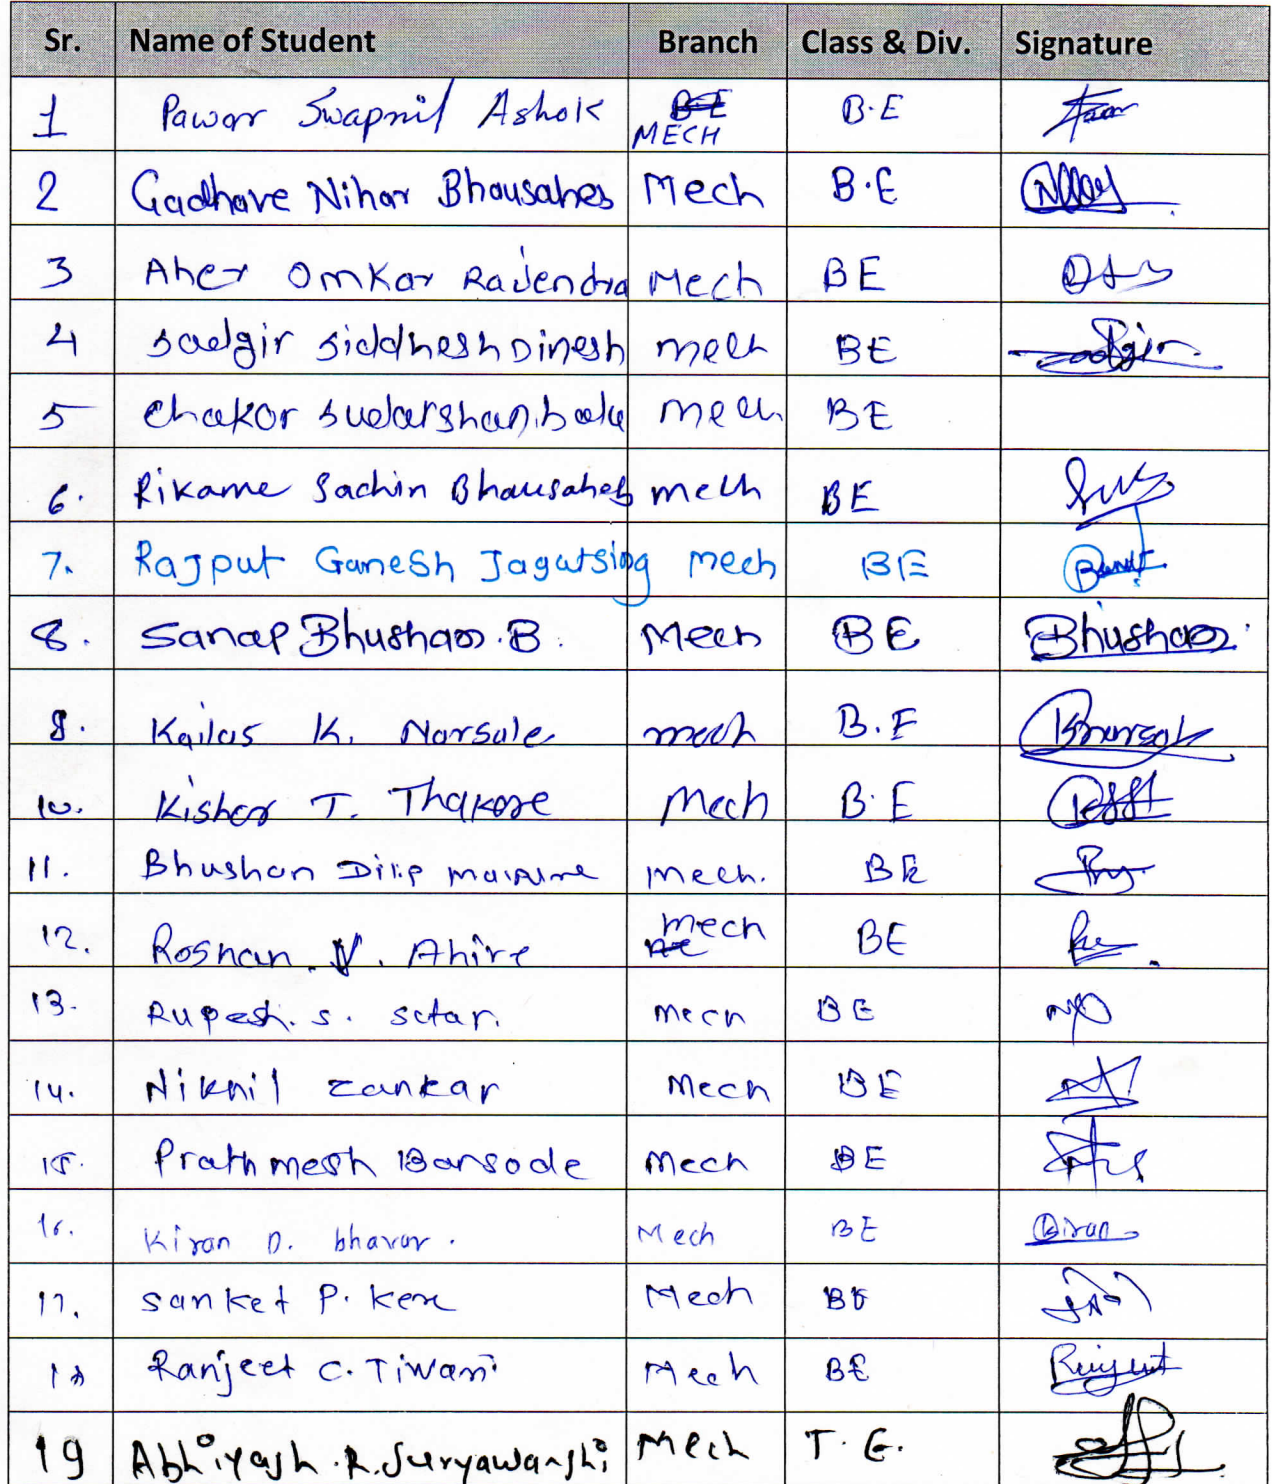 Sr. Name of Student Branch Class & Div. Signature
1 Pawar Swapnil Ashok BE MECH B.E
2 Gadhave Nihar Bhausaheb Mech B.E
3 Aher Omkar Rajendra Mech BE
4 Sadgir Siddhesh Dinesh mech BE
5 Chakor Sudarshan mech. BE
6. Rikame Sachin Bhausaheb mech BE
7. Rajput Ganesh Jagatsing Mech BE
8. Sanap Bhushan. B. Mech BE Bhushan
8. Kailas K. Narsale mech B.E
10. Kishor T. Thakare Mech B.E
11. Bhushan Dilip mech. BE
12. Roshan. V. Ahire mech BE
13. Rupesh. S. Mech BE
14. Nikhil Zankar Mech BE
15. Prathmesh Bansode Mech BE
16. Kiran D. bhavar. Mech BE Kiran
17. Sanket P. Mech BE
18 Ranjeet C. Tiwari Mech BE Ranjeet
19 Abhiyash.R.Suryawanshi Mech T.E.